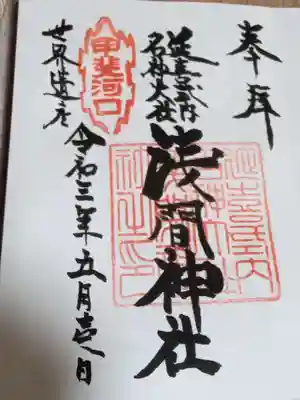 奉拝
延喜式内
名神大社
淺間神社
甲斐河口
世界遺産
令和三年五月壱日